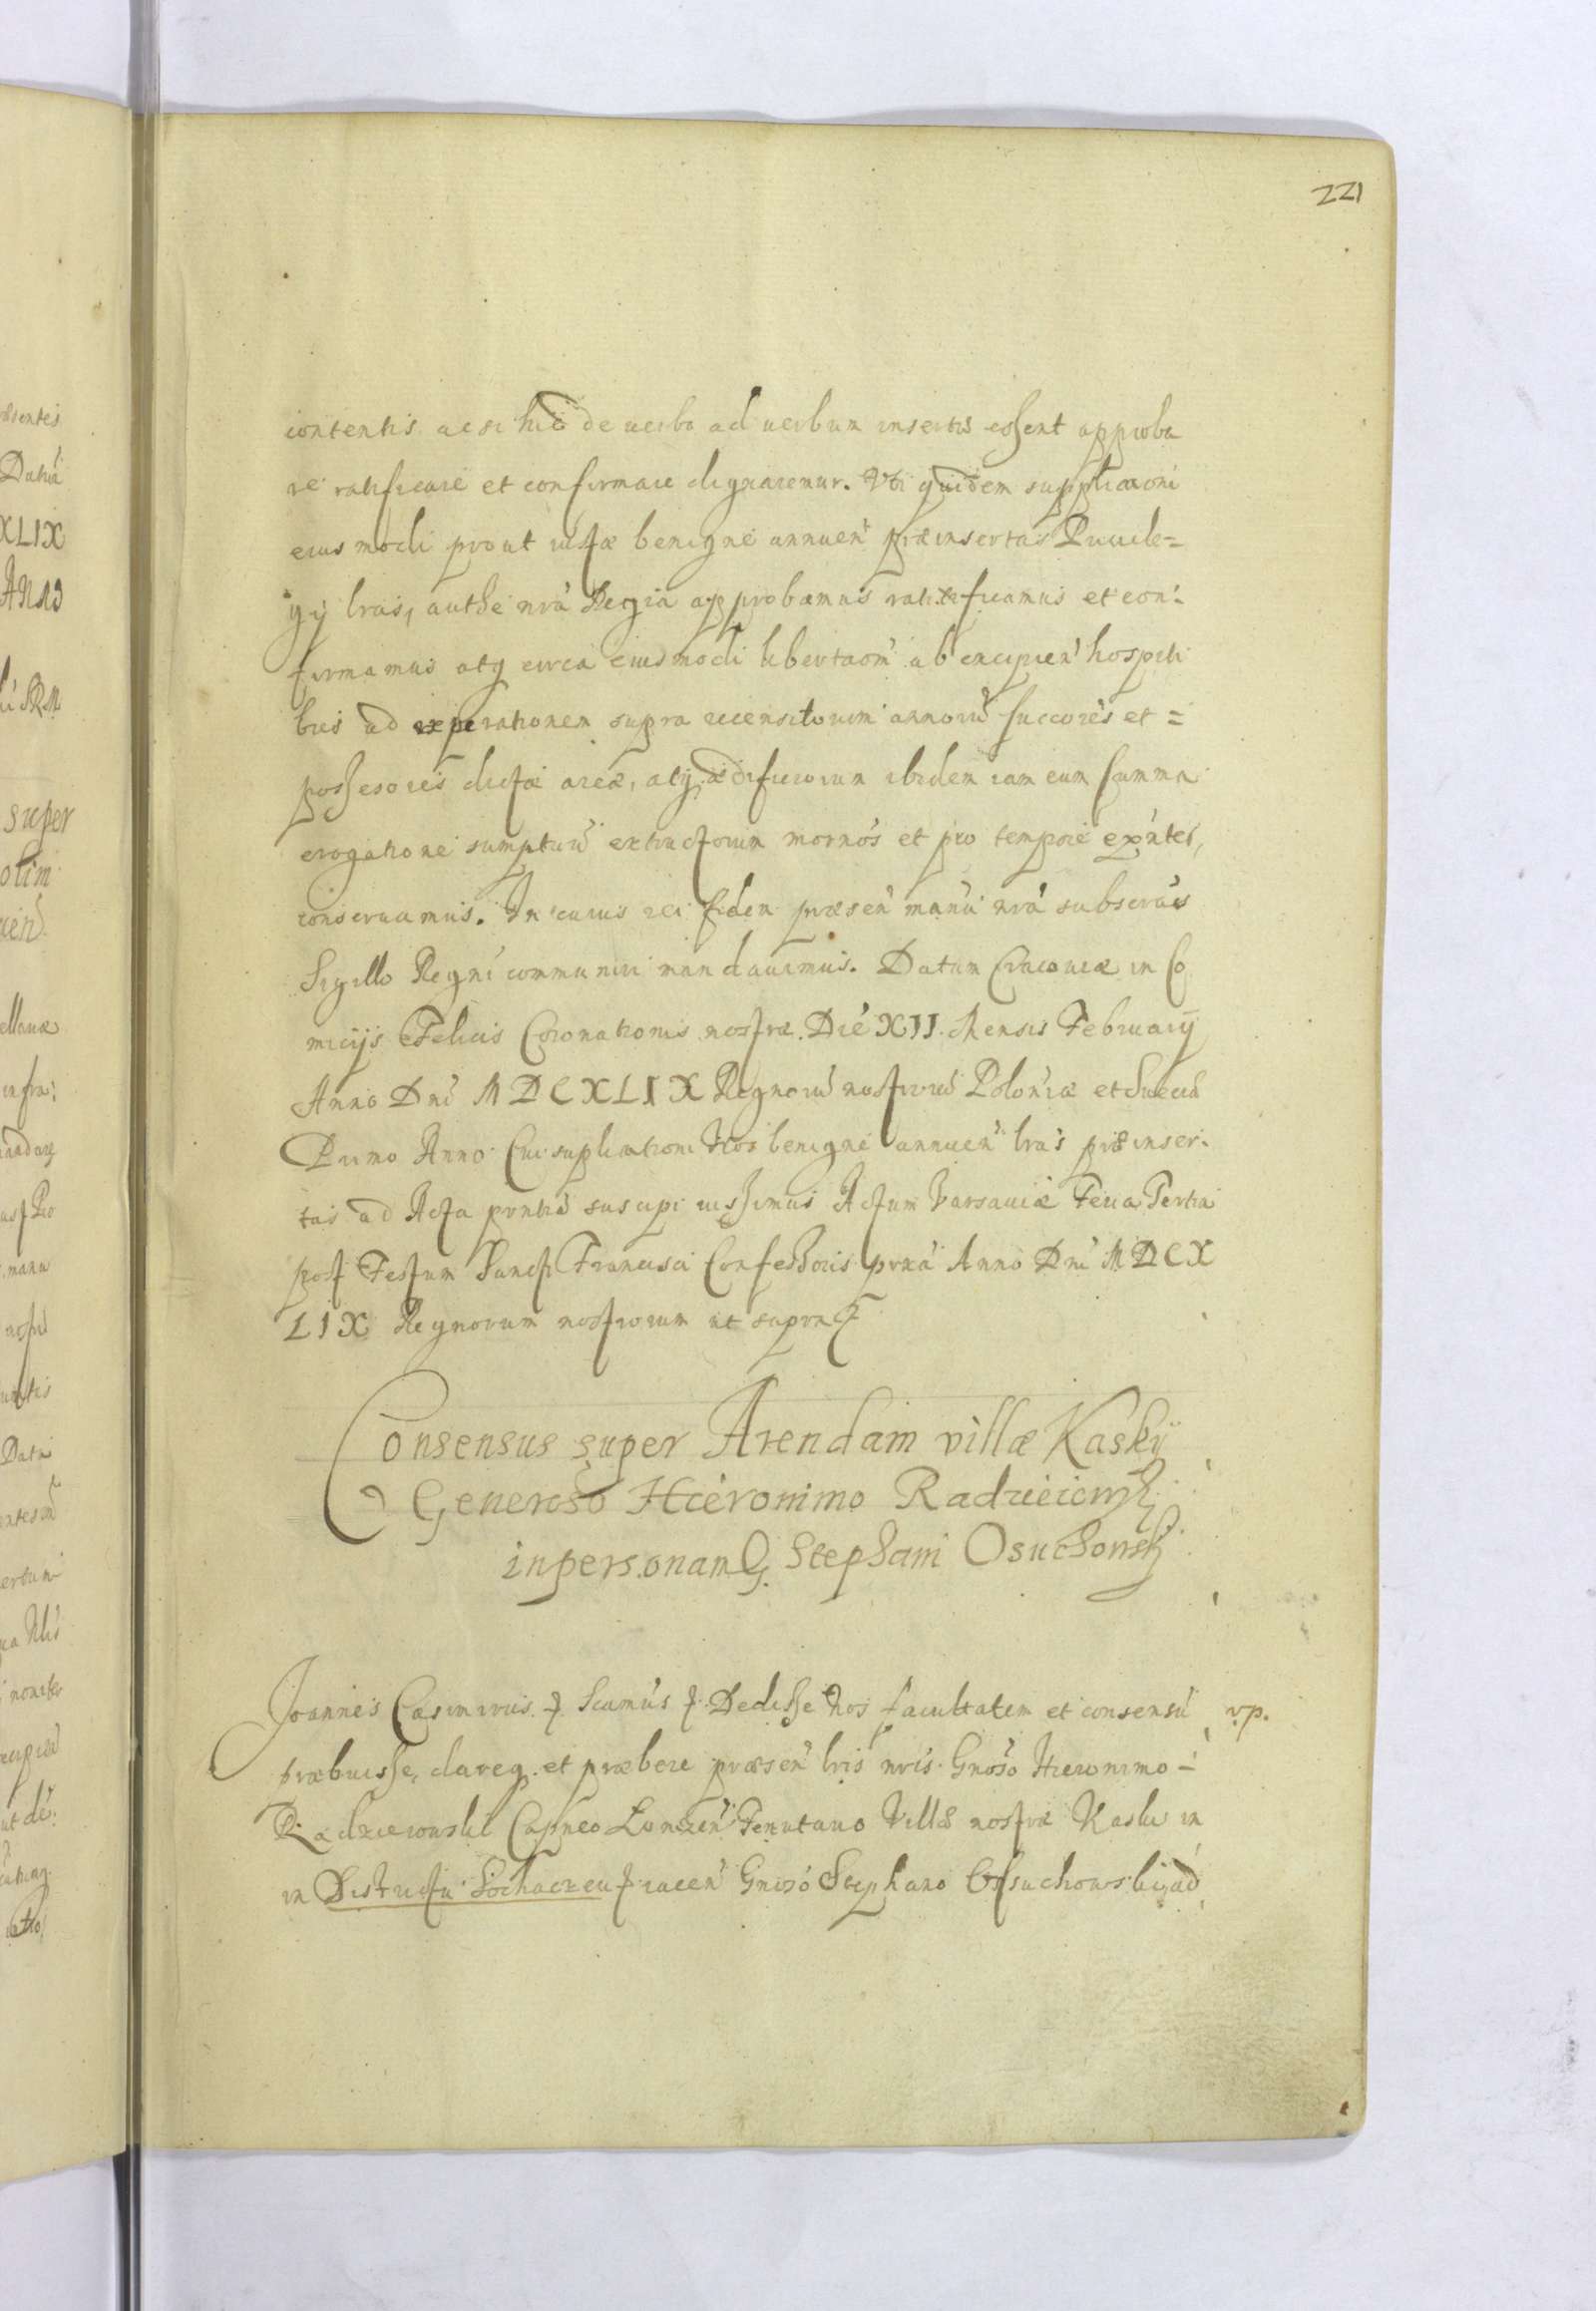 221
contentis ac si hic de verbo ad verbum insertis essent approba
re ratificare et confirmare dignaremur. Nos quidem supplicaoni
eius modi prout iustæ benigne annuen præinsertas Priuile=
gij lras, authe nra Regia approbamus ratificamus et con-
firmamus atq circa eiusmodi libertaom ab excipien hospiti
bus ad exspirationem supra recensitorum annoru succores et =
possesores dictæ areæ, atq ædificiorum ibidem iam cum summa
erogatione sumptuu extructorum mornos et pro tempore exntes,
conseruamus. In cuius rei fidem præsen manu nra subscras
Sigillo Regni communiri mandauimus. Datum Cracouiæ in Co
mitijs Felicis Coronationis nostræ. Die XII. Mensis February
Anno Dni MDCXLIX Regnoru nostroru Poloniæ et Sueciæ
Primo Anno. Cui suplicationi Nos benigne annuen lras præinser-
tas ad Acta pntia suscipi iussimus Actum Varsauiæ Feria Tertia
post Festum Sancti Francisci Confessoris pxa Anno Dni MDCX
LIX Regnorum nostrorum ut supra
Consensus super Arendam villæ Kasky
Generoso Hieronimo Radzieiowsk
in personam G. Stephani Osuchowsk
Joannes Casimirus Scamus Dedisse Nos facultatem et consensu v.p.
præbuisse, dareq. et præbere præsen lris nris. Gnoso Hieronimo -
Radzieiowski Capneo Lomzen Tenutario Villæ nostræ Kaski in
in Districtu Sochaczeu iacen Gnoso Stephano Ossuchowski, ad